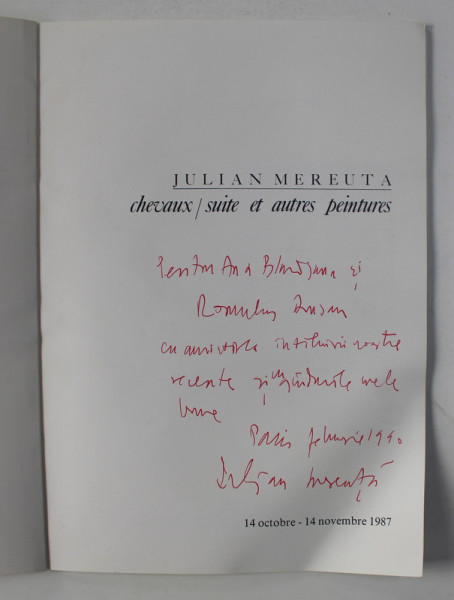 JULIAN MEREUTA
chevaux / suite et autres peintures
Pentru Ana Blandiana și
Romulus Rusan
cu amintirea întîlnirii noastre
recente și gîndurile mele
bune
Paris februarie 1990
Julian Mereuță
14 octobre - 14 novembre 1987